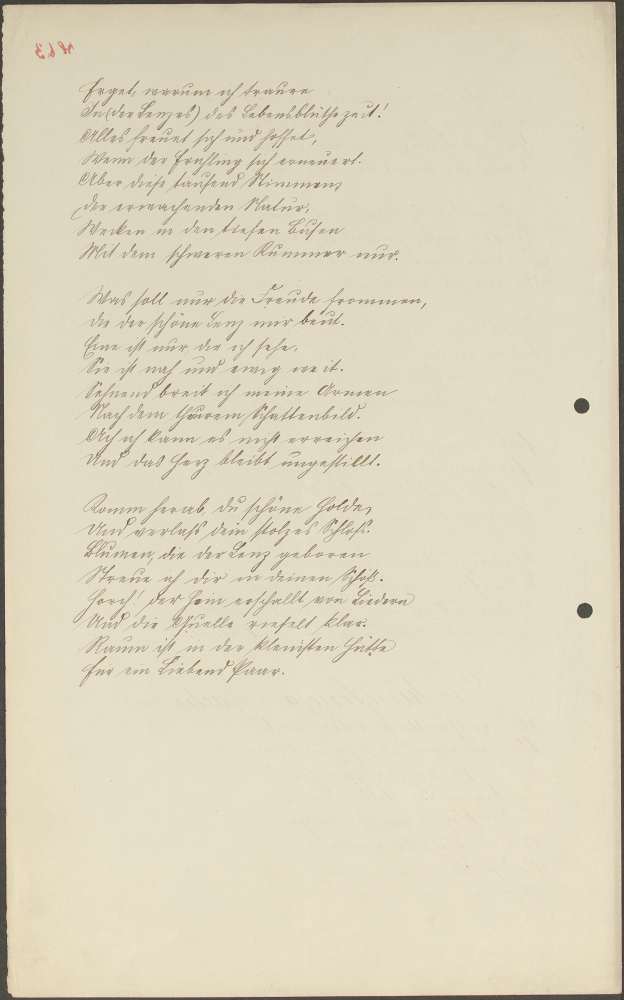 Frget, warum ich traure
In (der Lenzes) des Lebensblüthezeit!
Alles freuet sich und hoffet,
Wenn der Frühling sich erneuert.
Aber diese tausend Stimmen,
Der erwachenden Natur,
Wecken in den tiefen Busen
Mit dem schweren Kummer nur.
Was soll nur die Freude frommen,
die der schöne Lenz mir beut.
Eine ist nur die ich sehe,
Sie ist nah und ewig weit.
Sehnend breit ich meine Armen
Nach dem theurem Schattenbild.
Ach ich kann es nicht erreichen
Und das Herz bleibt ungestillt.
Komm herab, du schöne Holde,
Und verlass dein stolzes Schloß.
Blumen, die der Lenz geboren
Streue ich dir in deinen Schoß.
Horch! der Hain erschallt von Liedern
Und die Quelle rieselt klar.
Raum ist in der kleinsten Hütte
für ein Liebend Paar.